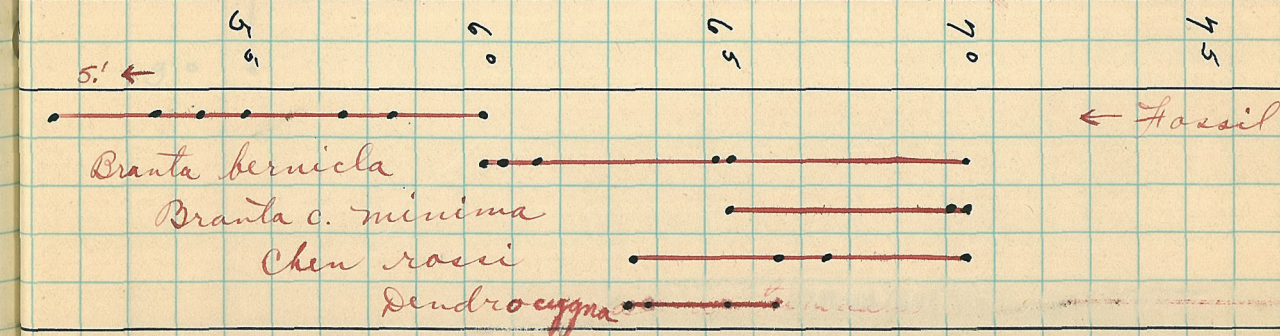 55 60 65 70 75
5.' ←
← Fossil
Branta bernicla
Branta c. minima
Chen rossi
Dendrocygna